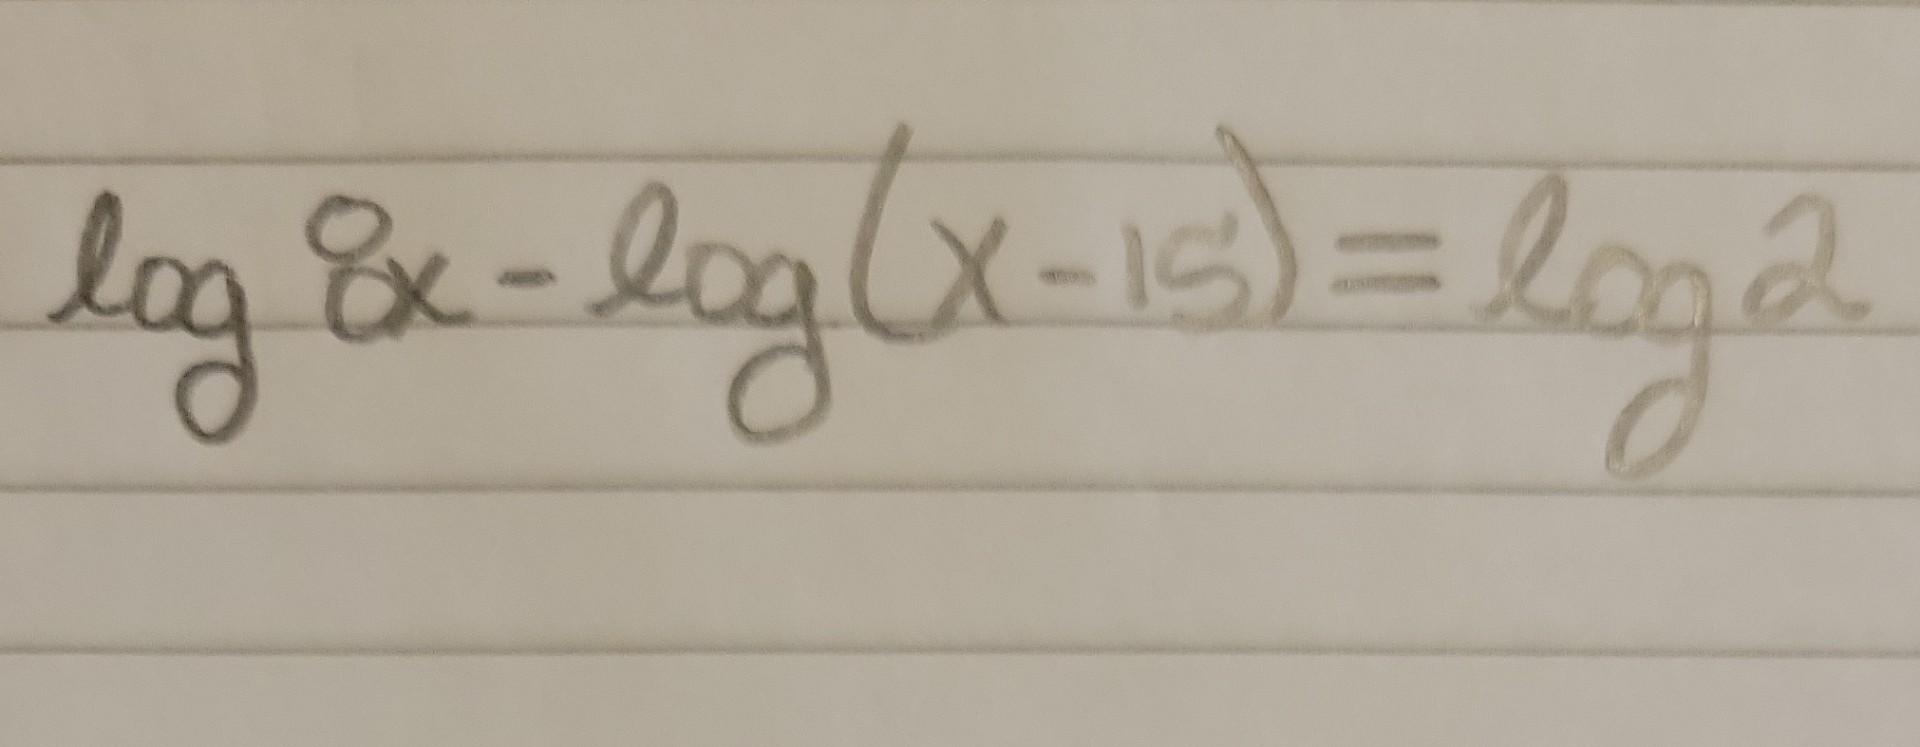 log 8x - log(x-15) = log 2